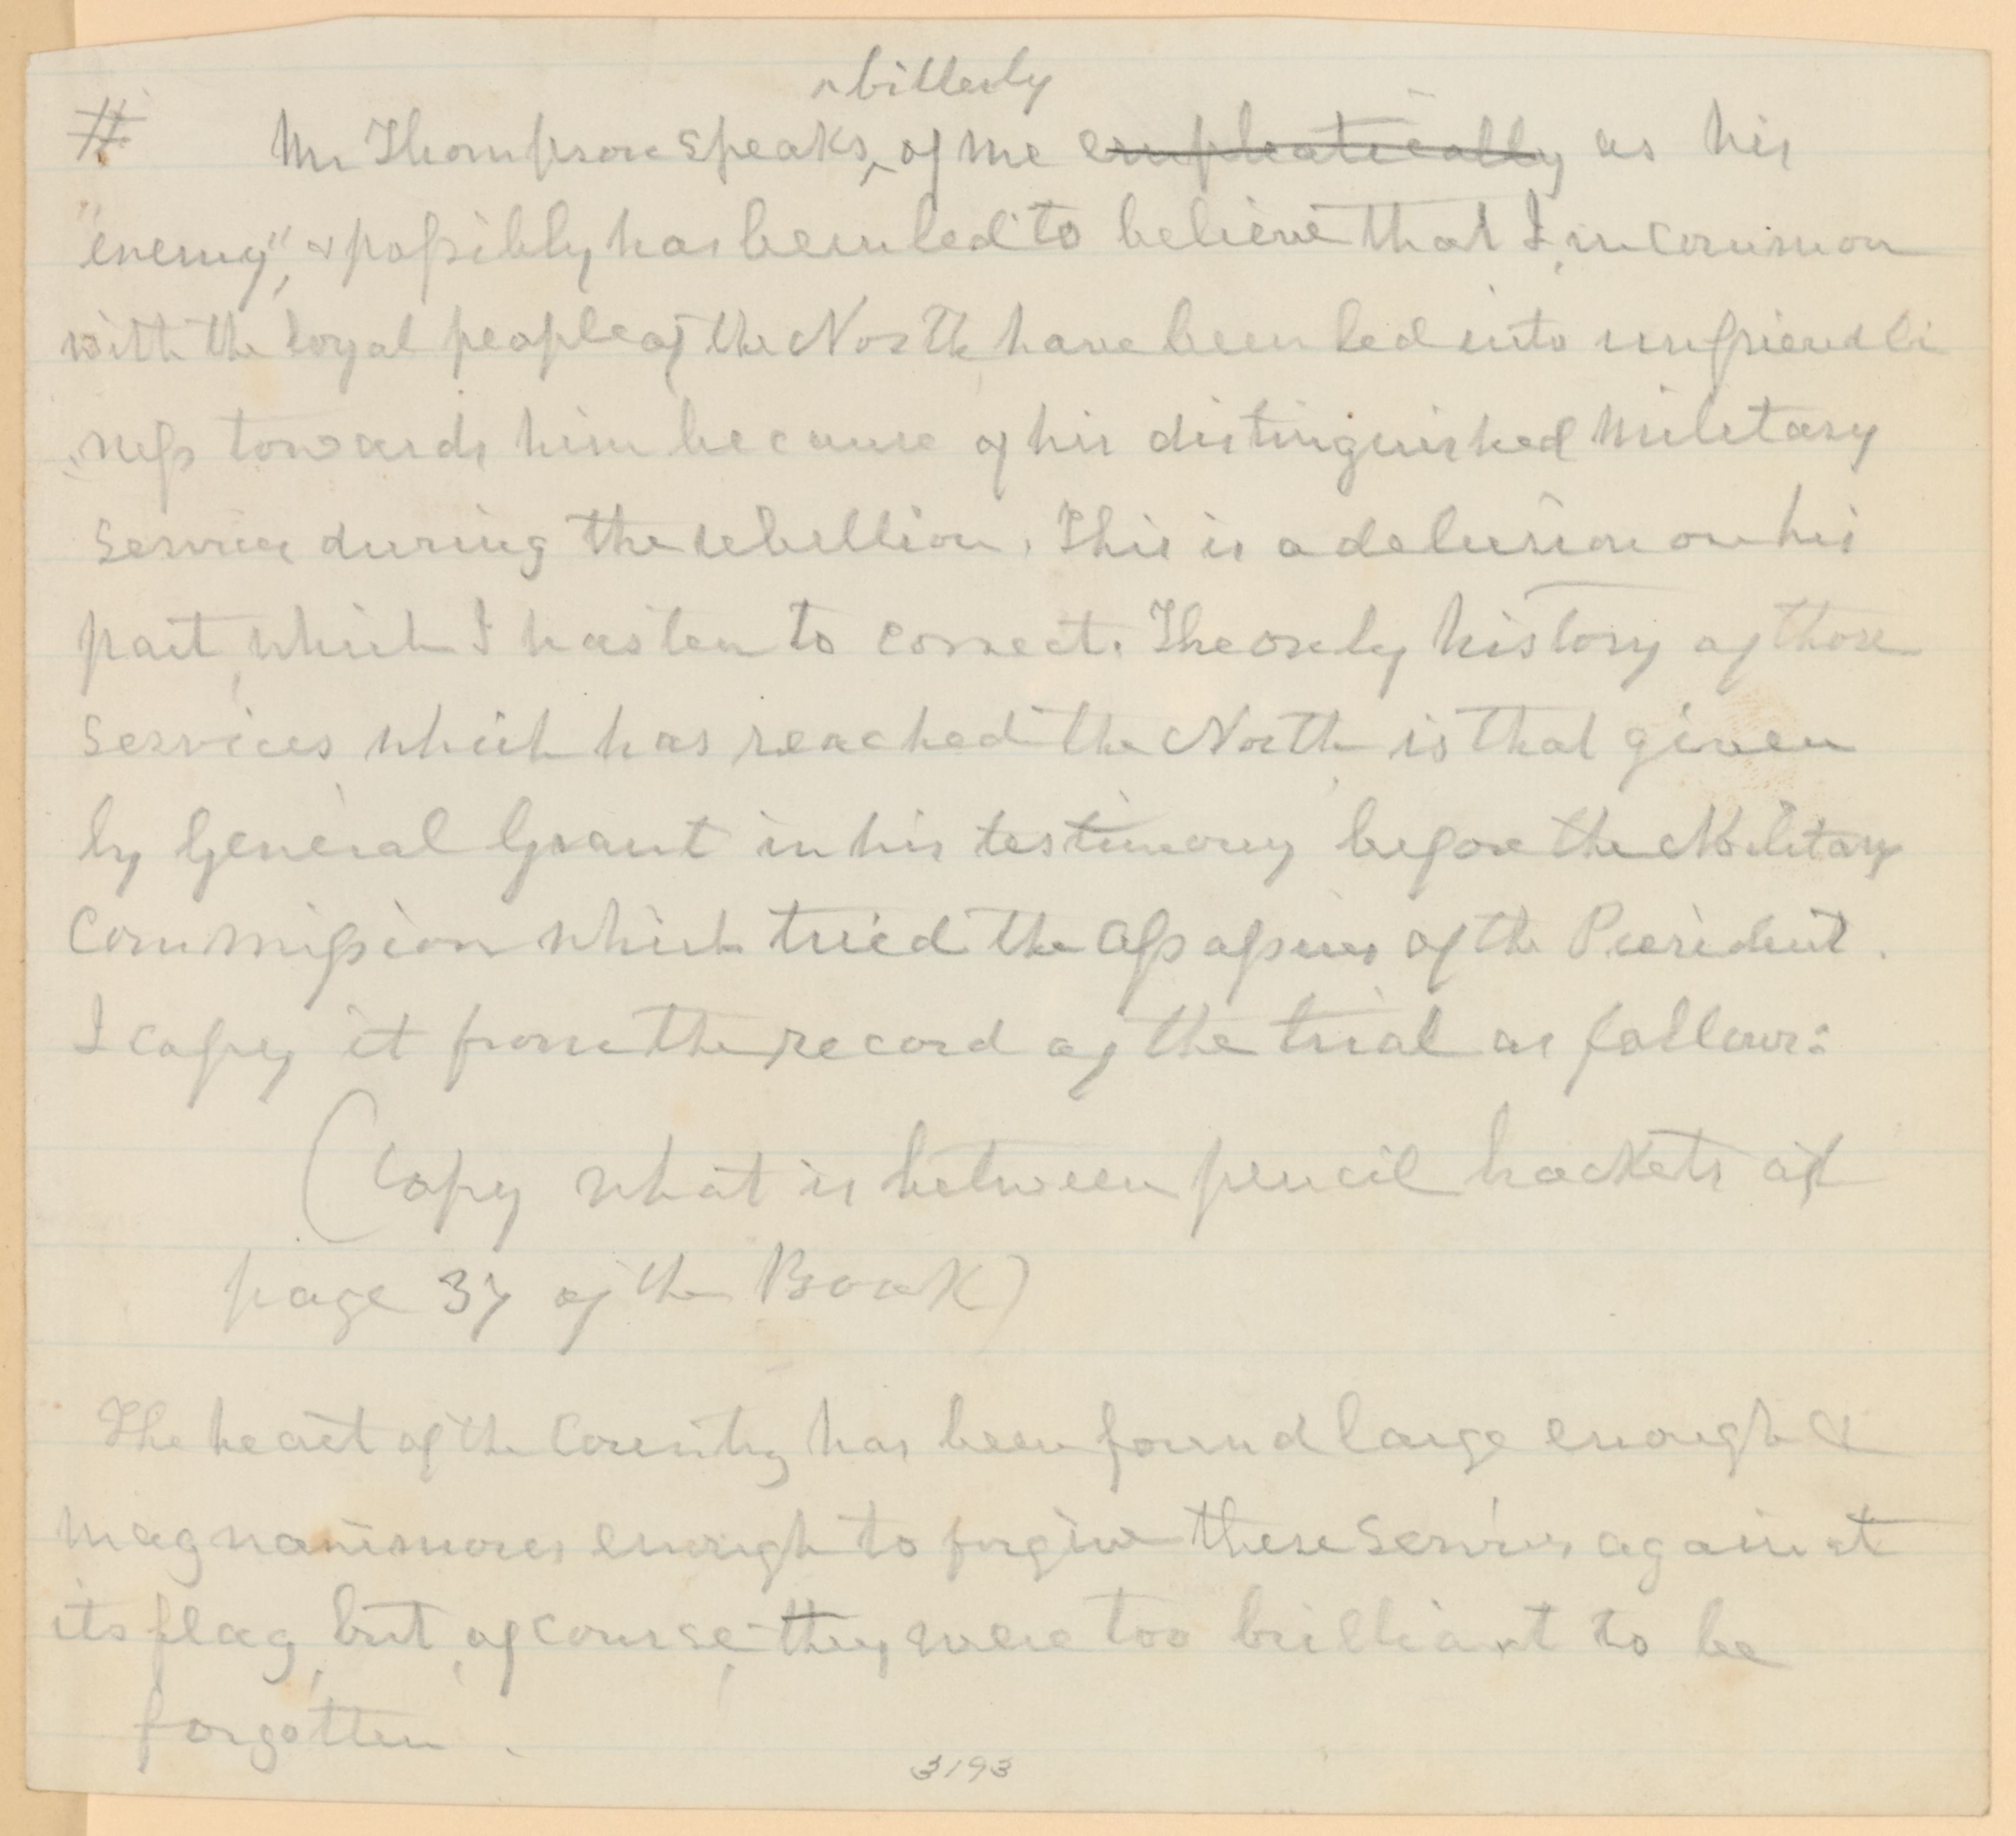 ^ bitterly
# Mr Thompson speaks ^ of me emphatically as his
"enemy", & possibly has been led to believe that I, in common
with the loyal people of the North, have been led into unfriendli
ness towards him because of his distinguished military
services during the rebellion. This is a delusion on his
part, which I hasten to correct. The only history of those
services which has reached the North, is that given
by General Grant in his testimony before the Military
Commission which tried the assassins of the President.
I copy it from the record of the trial as follows:
(Copy what is between pencil brackets at
page 37 of the Book)
The heart of the Country has been found large enough &
magnanimous enough to forgive these services against
its flag, but, of course, they were too brilliant to be
forgotten.
3193